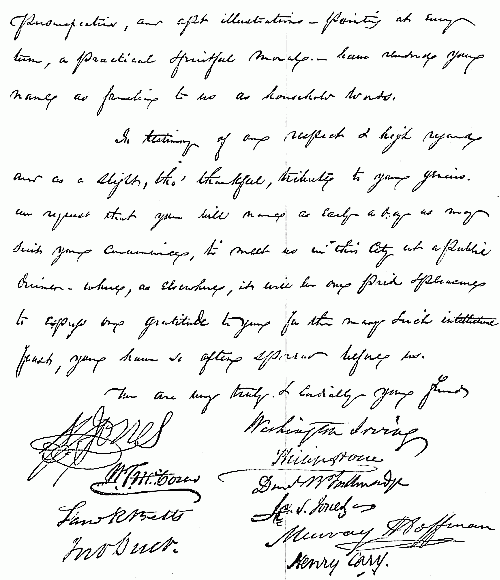 perspicuities, and apt illustrations – pointing at every
turn, a practical & fruitful moral – have rendered your
names as familiar to us as household words.
In testimony of our respect & high regards
and as a slight, tho' thankful, tribute to your genius.
we request that you will name as early a day as may
suit your convenience, to meet us in this City at a public
dinner – where, as elsewhere, it will be our
to express our gratitude to you for the many such intellectual
feasts, you have so often spread before us.
We are very truly & cordially your friends
Jones
Washington Irving
Philip Hone
W. T. McCoun
David
S. Jones
Murray Hoffman
Jno Duer.
Henry Cary.